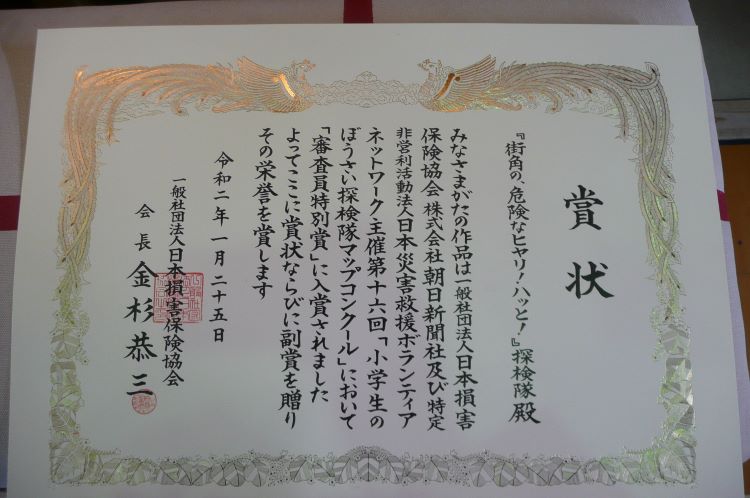 賞状
『街角の、危険なヒヤリ！ハッと！』探検隊 殿
みなさまがたの作品は一般社団法人日本損害
保険協会 株式会社朝日新聞社及び特定
非営利活動法人日本災害救援ボランティア
ネットワーク主催第十六回「小学生の
ぼうさい探検隊マップコンクール」において
「審査員特別賞」に入賞されました
よってここに賞状ならびに副賞を贈り
その栄誉を賞します
令和二年一月二十五日
一般社団法人日本損害保険協会
会長 金杉恭三